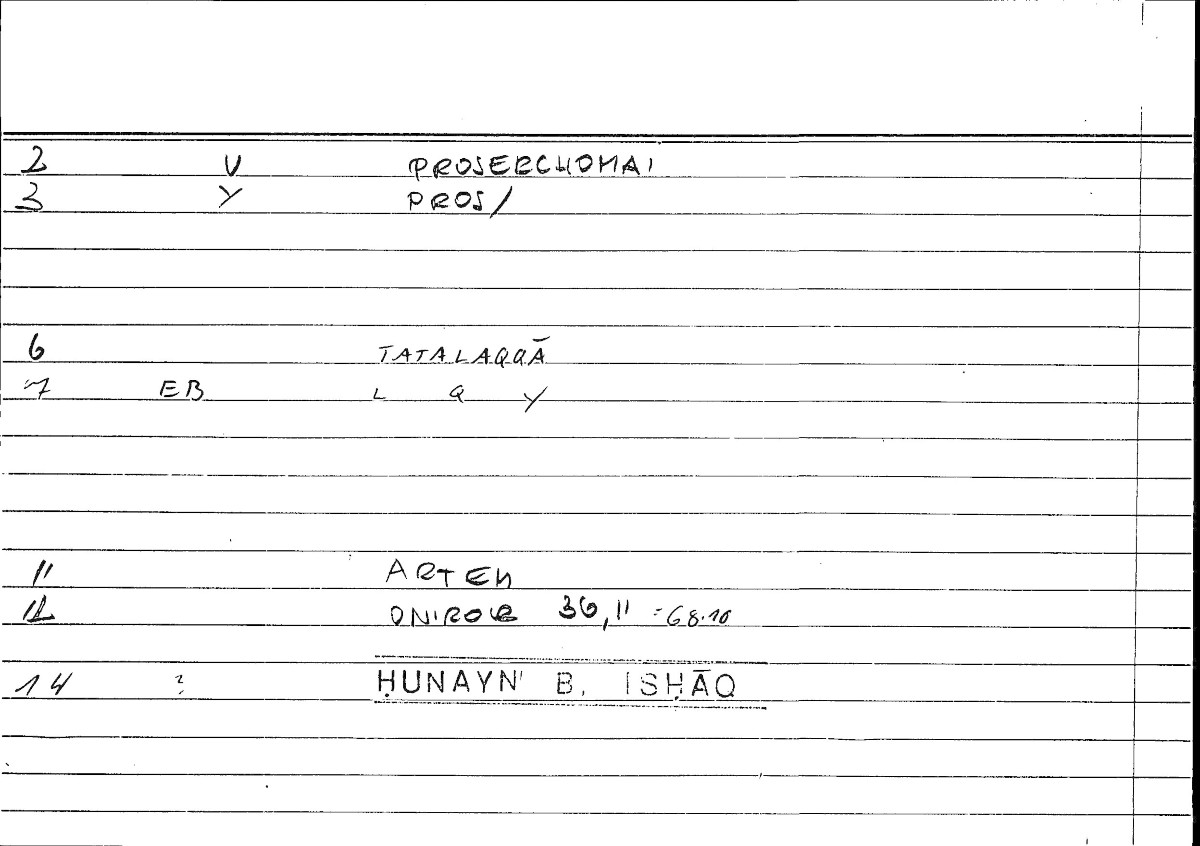 2 V PROSERCHOMAI
3 Y PROS/
6 TATALAQQĀ
7 EB L Q Y
11 ARTEM
12 ONIROCR 36,11 = 68.10
14 ? ḤUNAYN B. ISḤĀQ